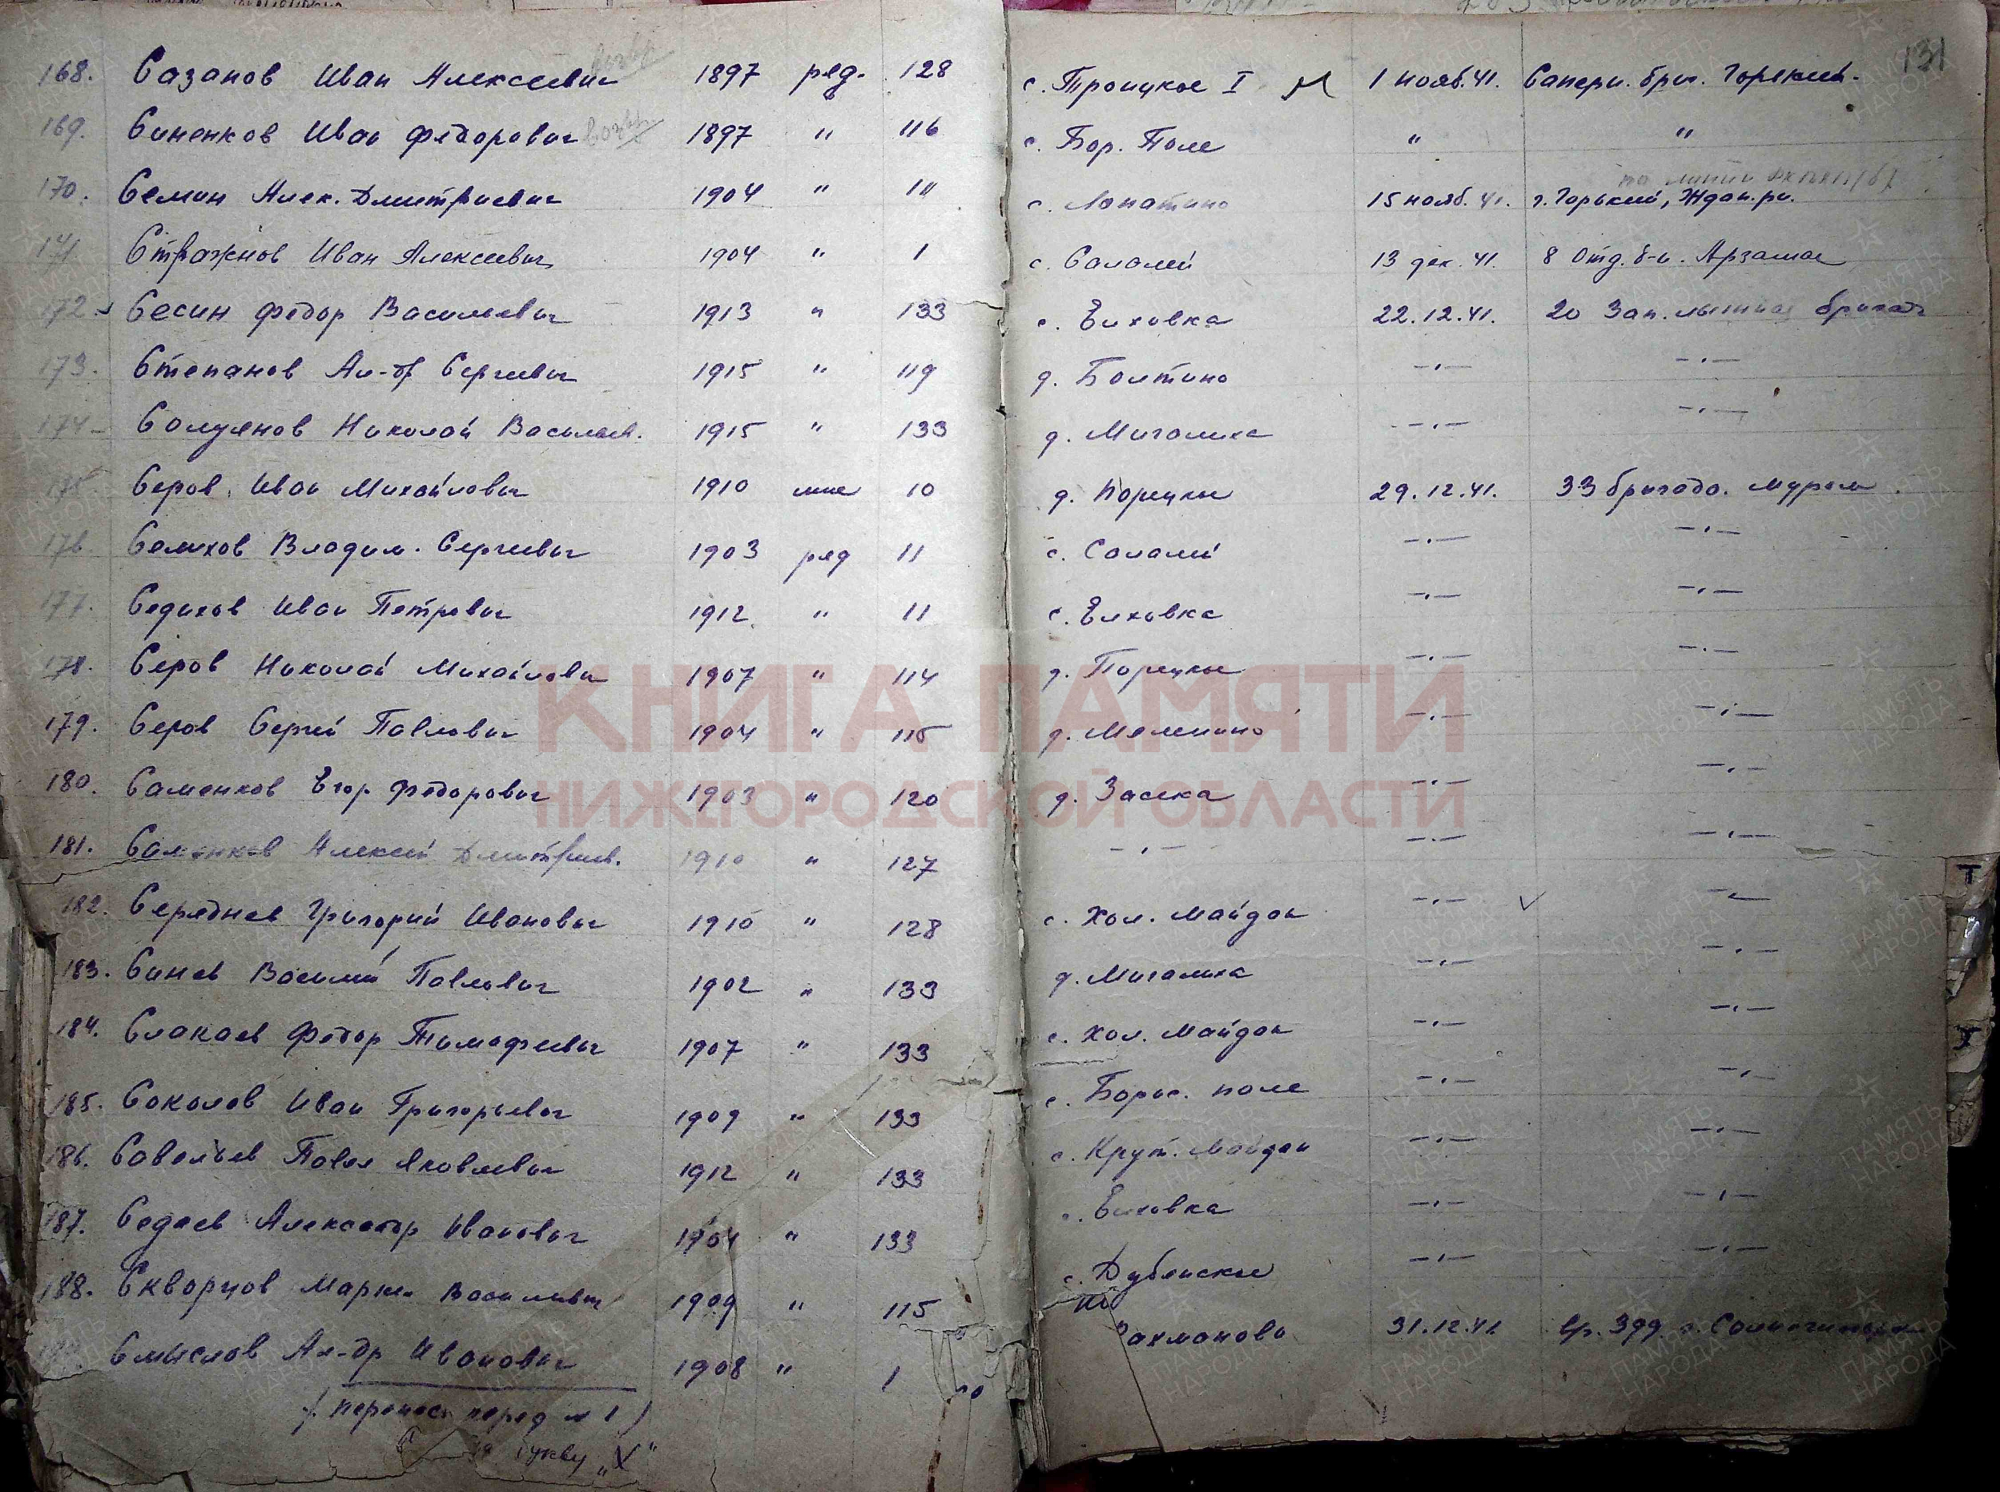 131
168. Сазанов Иван Алексеевич 1897 ряд. 128 с. Троицкое I 1 нояб. 41. Саперн. бриг. Горький.
возвр.
169. Синенков Иван Федорович возвр. 1897 " 116 с. Бор. Поле " "
170. Семин Алек. Дмитриевич 1904 " 111 с. Лопатино 15 нояб. 41. г. Горький, Ждан. р-н.
по линии
171. Стражнов Иван Алексеевич 1904 " 1 с. Салалей 13 дек. 41. 8 Отд. б-н. Арзамас
172 Сесин Федор Васильевич 1913 " 133 с. Елховка 22.12.41. 20 Зап. лыжная бригада
173. Степанов Ал-др Сергеевич 1915 " 119 д. Болтино -"- -"-
174 Солуянов Николай Васильев. 1915 " 133 д. Мигалиха -"- -"-
175. Серов Иван Михайлович 1910 10 д. Порецкое 29.12.41. 33 бригада. Муром
176. Селихов Владим. Сергеевич 1903 ряд 11 с. Салалей -"- -"-
177. Седихов Иван Петрович 1912. " 11 с. Елховка -"- -"-
178. Серов Николай Михайлович 1907 " 114 д. Порецкое -"- -"-
179. Серов Сергей Павлович 1904 " 115 д. Мяленино -"- -"-
180. Саменков Егор Федорович 1903 " 120 д. Засека -"- -"-
181. Саменков Алексей Дмитриев. 1910 " 127 -"- -"- -"-
182. Середнев Григорий Иванович 1910 " 128 с. Хол. Майдан -"- -"-
183. Синев Василий Павлович 1902 " 133 д. Мигалиха -"- -"-
184. Слакаев Федор Тимофеевич 1907 " 133 с. Хол. Майдан -"- -"-
185. Соколов Иван Григорьевич 1909 " 133 с. Борис. поле -"- -"-
186. Савельев Павел Яковлевич 1912 " 133 с. Крут. Майдан -"- -"-
187. Седаев Александр Иванович 1904 " 133 с. Елховка -"- -"-
188. Скворцов Василевич 1909 " 115 с. Дубенское -"- -"-
Смыслов Ал-др Иванович 1908 " 1 Рахманово 31.12.41 399
(перенос перед № 1)
на букву „Х"
КНИГА ПАМЯТИ
НИЖЕГОРОДСКОЙ ОБЛАСТИ
ПАМЯТЬ НАРОДА